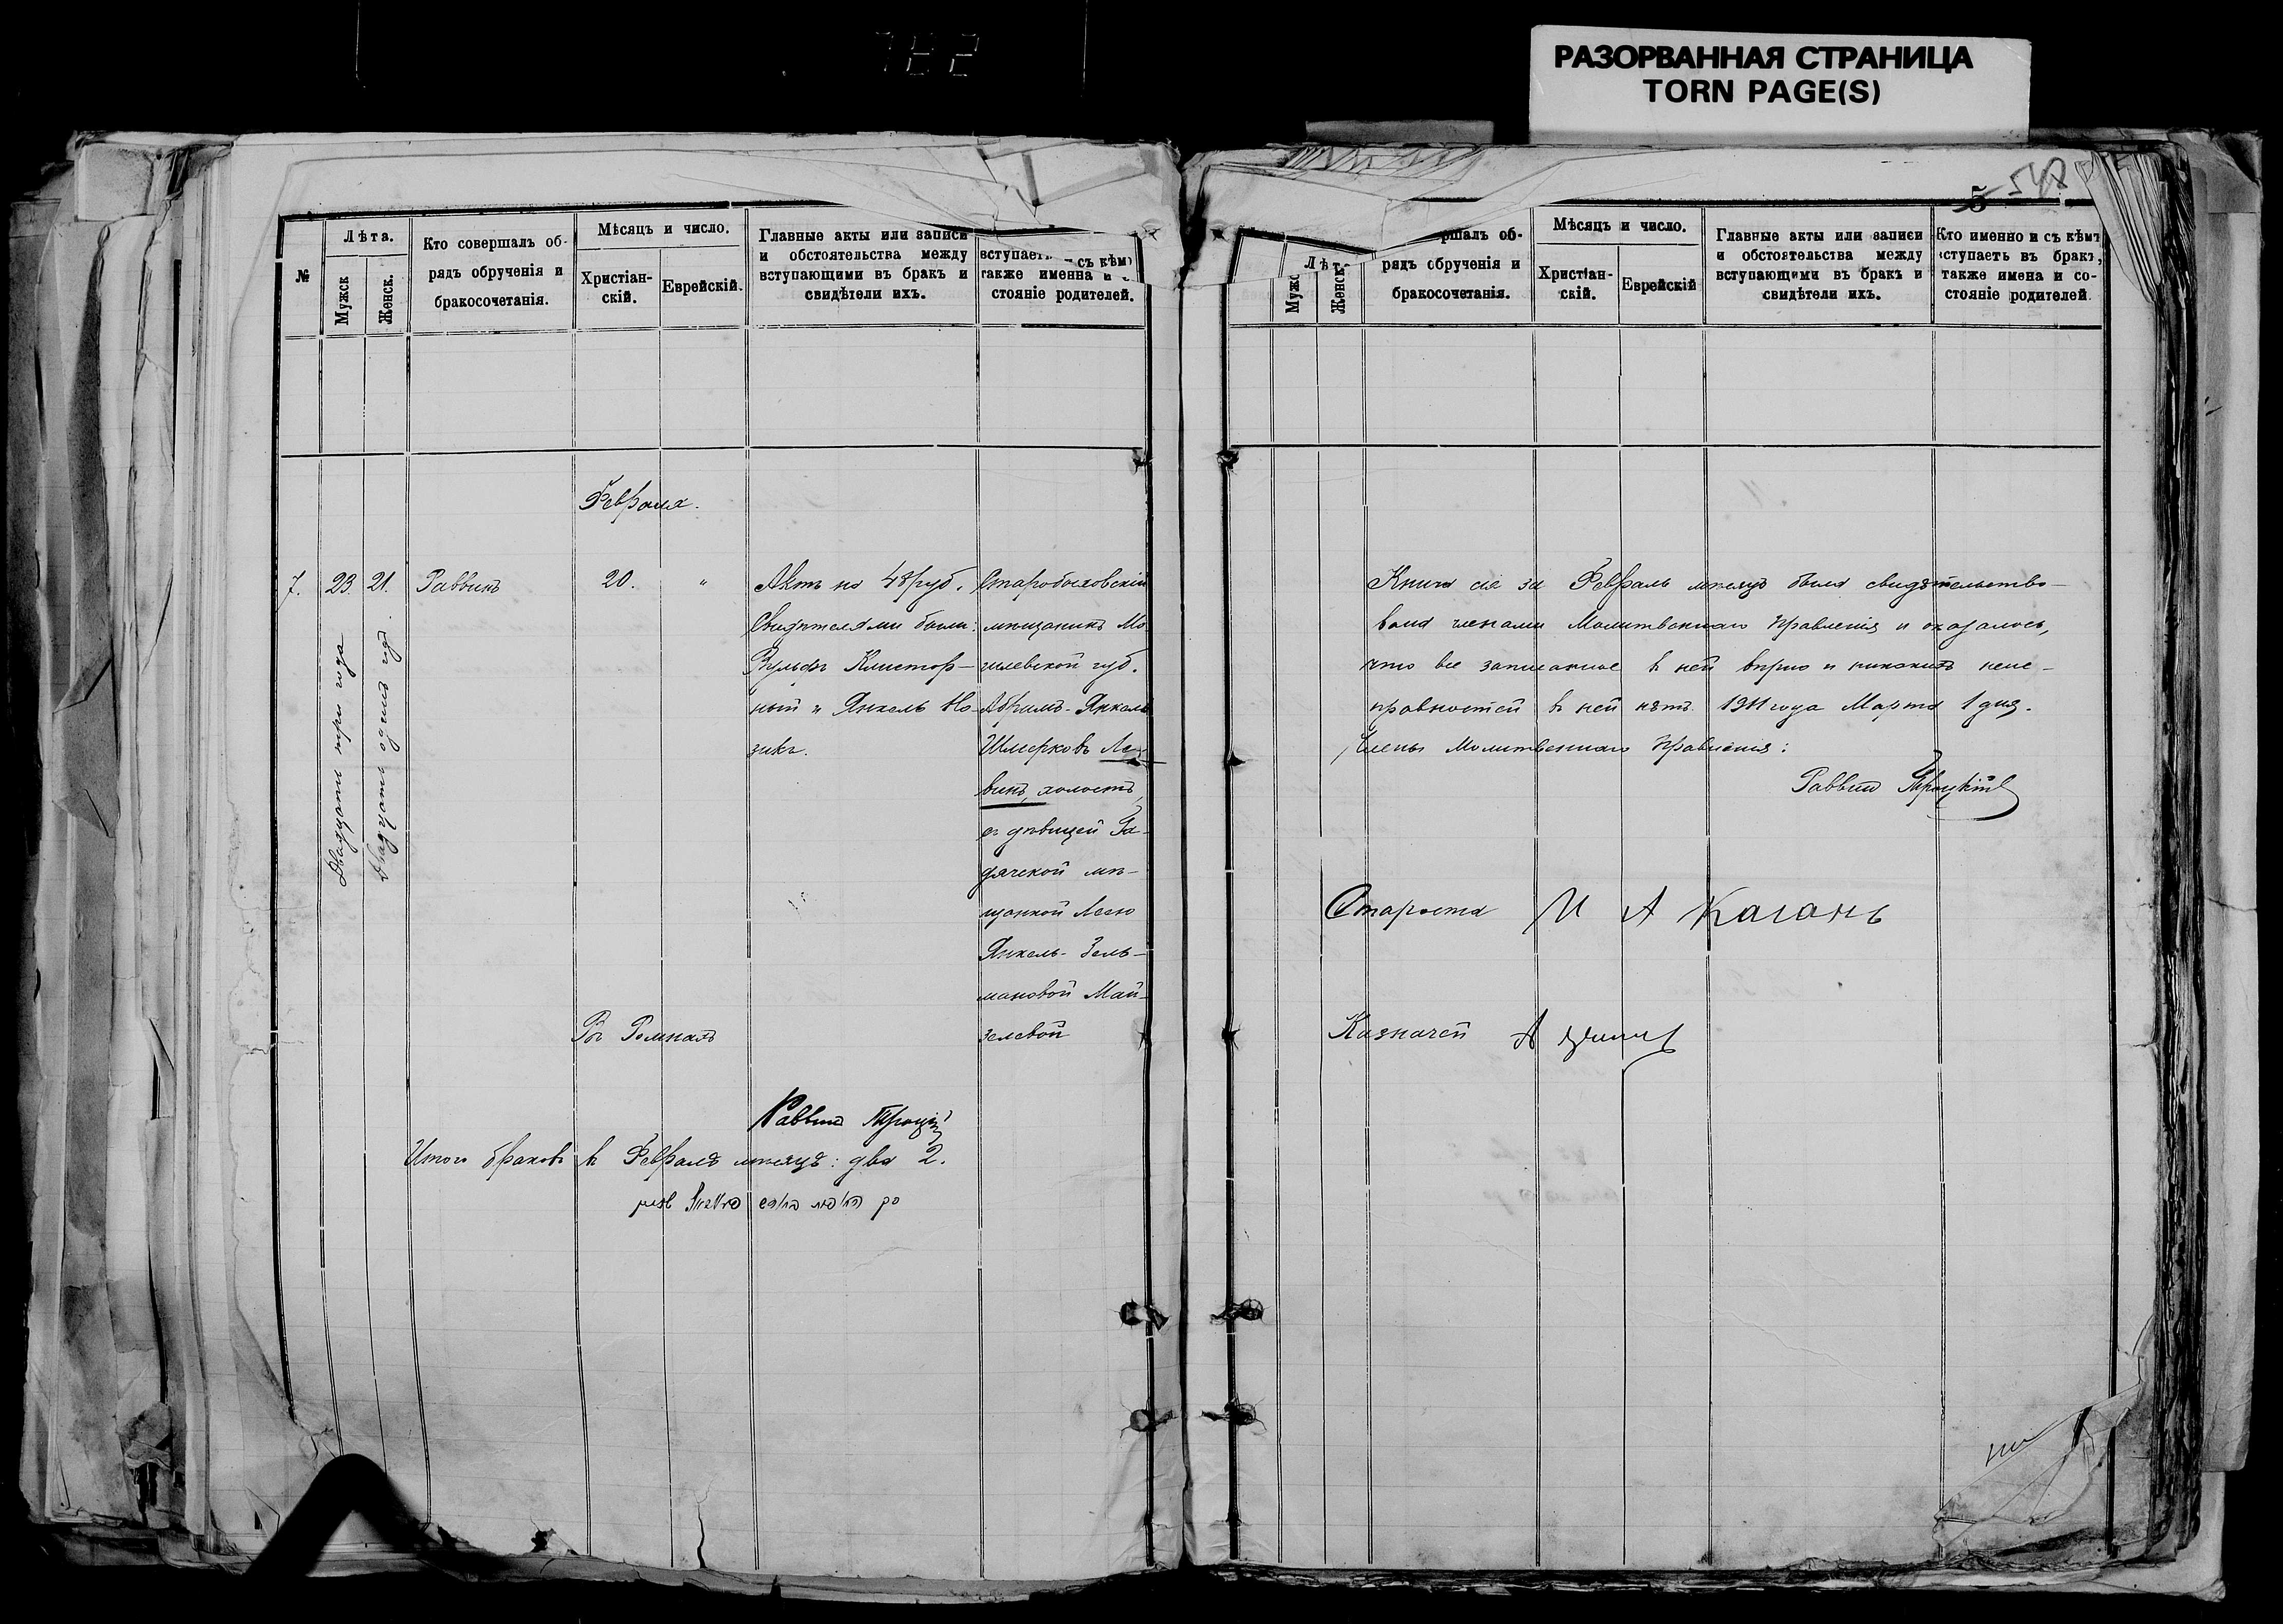 РАЗОРВАННАЯ СТРАНИЦА
TORN PAGE(S)
№
Лѣта.
Мужск
Женск.
Кто совершалъ об-
рядъ обрученія и
бракосочетанія.
Мѣсяцъ и число.
Христіан-
скій.
Еврейскій.
Главные акты или записи
и обстоятельства между
вступающими въ бракъ и
свидѣтели ихъ.
вступаетъ съ кѣмъ
также имена и
стояніе родителей.
Февраля.
7.
23.
Двадцать три года
21.
Двадцать одинъ годъ.
Раввинъ
20.
"
Актъ на 48 руб.
Свидѣтелями были:
Вульфъ Клистор-
ный и Янкель Но-
зикъ.
Старобыховскій
мѣщанинъ Мо
гилевской губ.
Абрамъ-Янкель
Шмерковъ Ле-
винъ, холостъ,
съ дѣвицей Га-
дячской мѣ-
щанкой Леею
Янкель-Зель-
мановой Май-
зелевой
Въ Ромнахъ
Раввинъ Троцкій
Итого браковъ въ Февралѣ мѣсяцѣ: два 2.
5
548
Лѣт
Мужс
Женск.
ршалъ об-
рядъ обрученія и
бракосочетанія.
Мѣсяцъ и число.
Христіан-
скій.
Еврейскій
Главные акты или записи
и обстоятельства между
вступающими въ бракъ и
свидѣтели ихъ.
Кто именно и съ кѣмъ
вступаетъ въ бракъ,
также имена и со-
стояніе родителей.
Книга сія за Февраль мѣсяцъ была свидѣтельство-
вана членами Молитвеннаго Правленія и оказалось,
что все записанное въ ней вѣрно и никакихъ неис-
правностей въ ней нѣтъ 1911 года Марта 1 дня.
Члены Молитвеннаго Правленія:
Раввинъ Троцкій
Староста И А Каганъ
Казначей А